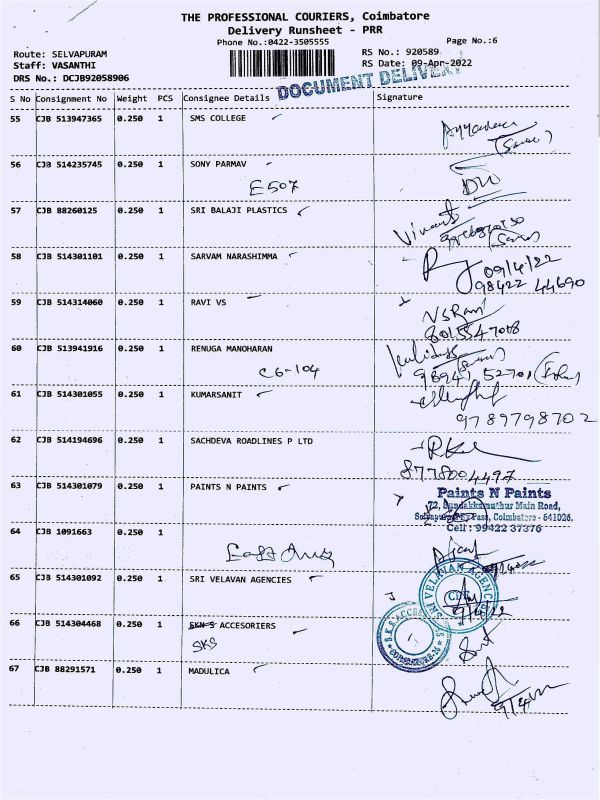 THE PROFESSIONAL COURIERS, Coimbatore
Delivery Runsheet - PRR
Phone No.:0422-3505555
Page No.:6
Route: SELVAPURAM
RS No.: 920589
Staff: VASANTHI
RS Date: 09-Apr-2022
DRS No.: DCJB92058906
DOCUMENT DELIVERY
S No Consignment No Weight PCS Consignee Details Signature
55 CJB 513947365 0.250 1 SMS COLLEGE
56 CJB 514235745 0.250 1 SONY PARMAV
E507
57 CJB 88260125 0.250 1 SRI BALAJI PLASTICS
58 CJB 514301101 0.250 1 SARVAM NARASHIMMA
09/4/22
98422 44690
59 CJB 514314060 0.250 1 RAVI VS
VSRavi
8015547018
60 CJB 513941916 0.250 1 RENUGA MANOHARAN
C6-104
98941 52701
61 CJB 514301055 0.250 1 KUMARSANIT
9789798702
62 CJB 514194696 0.250 1 SACHDEVA ROADLINES P LTD
8778004497
63 CJB 514301079 0.250 1 PAINTS N PAINTS
Paints N Paints
72, Sundakkamuthur Main Road,
Selvapuram By Pass, Coimbatore - 641026.
Cell : 99422 37376
64 CJB 1091663 0.250 1
65 CJB 514301092 0.250 1 SRI VELAVAN AGENCIES
SRI VELAVAN AGENCIES
CBE
9/4/22
66 CJB 514304468 0.250 1 SKN S ACCESORIERS
SKS
67 CJB 88291571 0.250 1 MADULICA